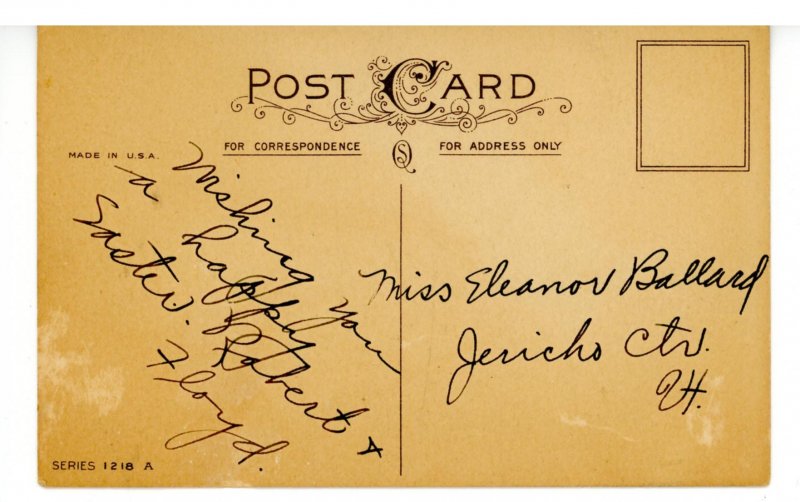 POST CARD
FOR CORRESPONDENCE
FOR ADDRESS ONLY
MADE IN U.S.A.
Wishing you
a happy
Easter. Robert +
Floyd.
Miss Eleanor Ballard
Jericho Ctr.
Vt.
SERIES 1218 A